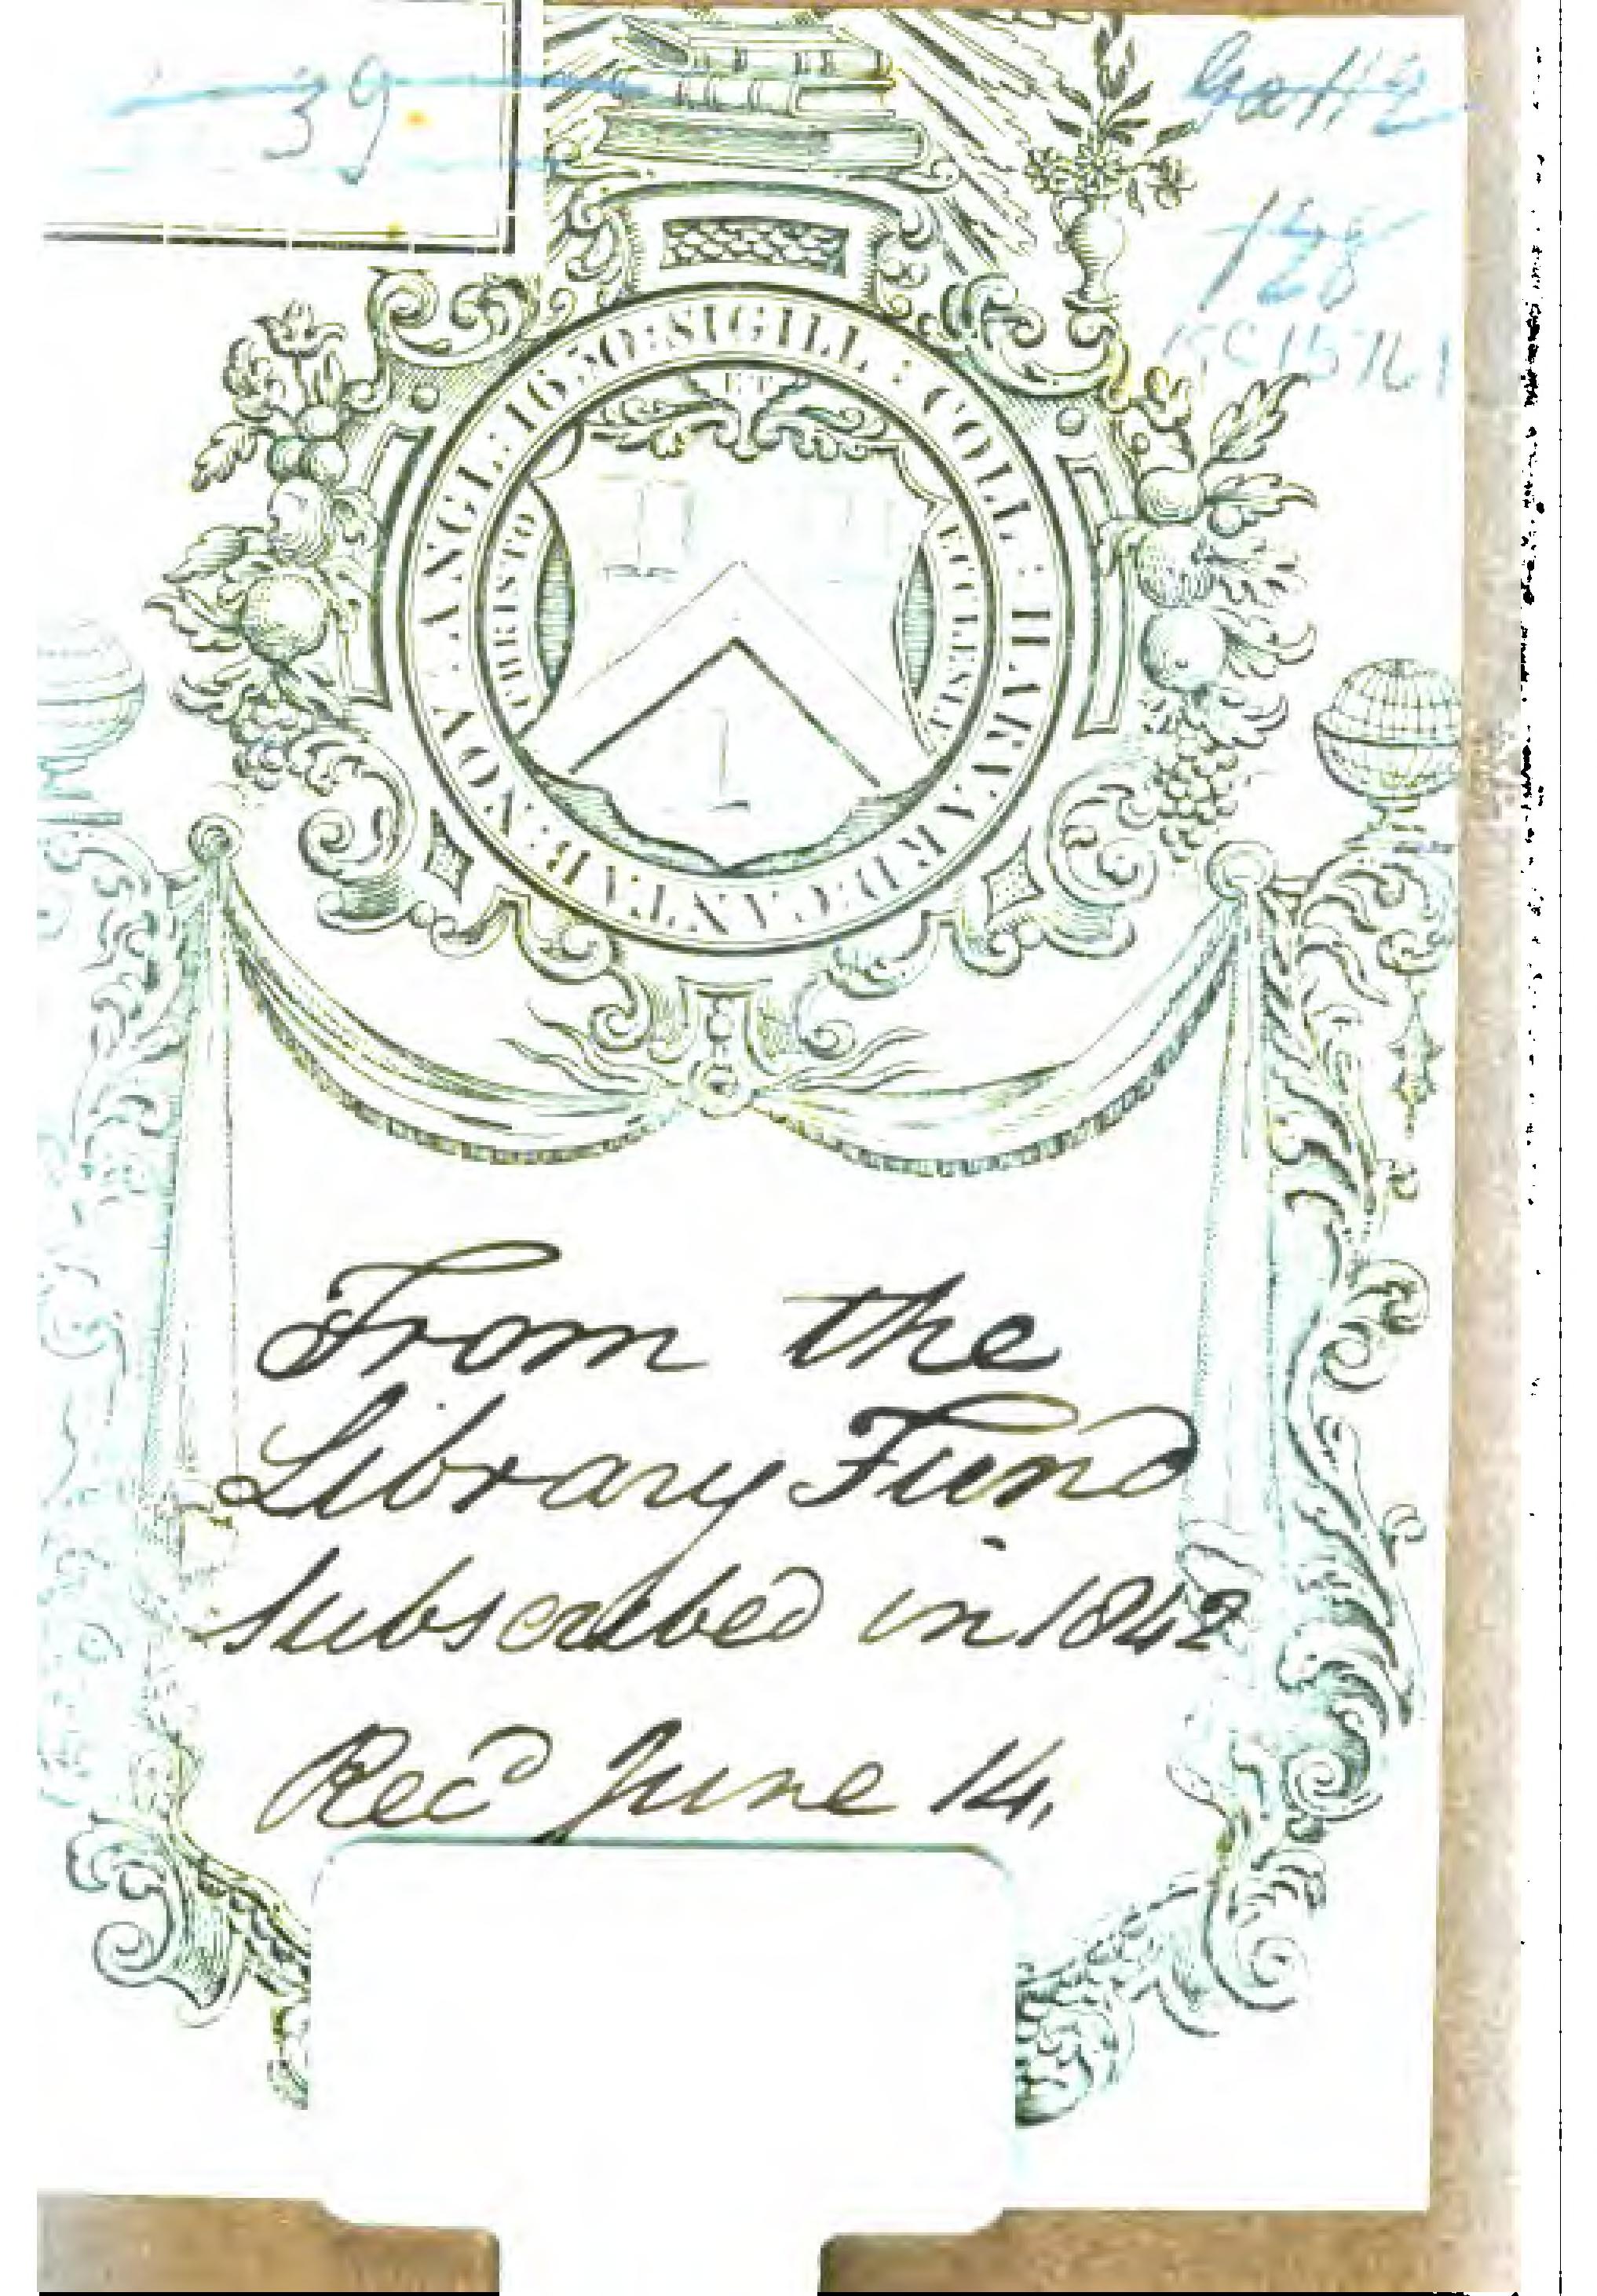 39
128
KC15761
SIGILL : COLL : HARVARD : CANTAB : NOV : ANGL : 1650 :
ET
CHRISTO
ECCLESIÆ
From the
Library Fund
subscribed in 1842
Rec^d June 14,